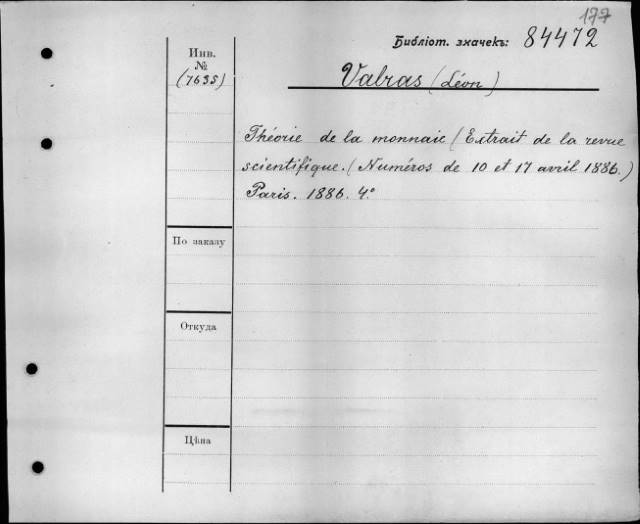 177
Библіот. значекъ: 84472
Инв.
№
(7635)
Valras (Léon)
Théorie de la monnaie (Extrait de la revue
scientifique. (Numéros de 10 et 17 avril 1886.)
Paris. 1886. 4°
По заказу
Откуда
Цѣна